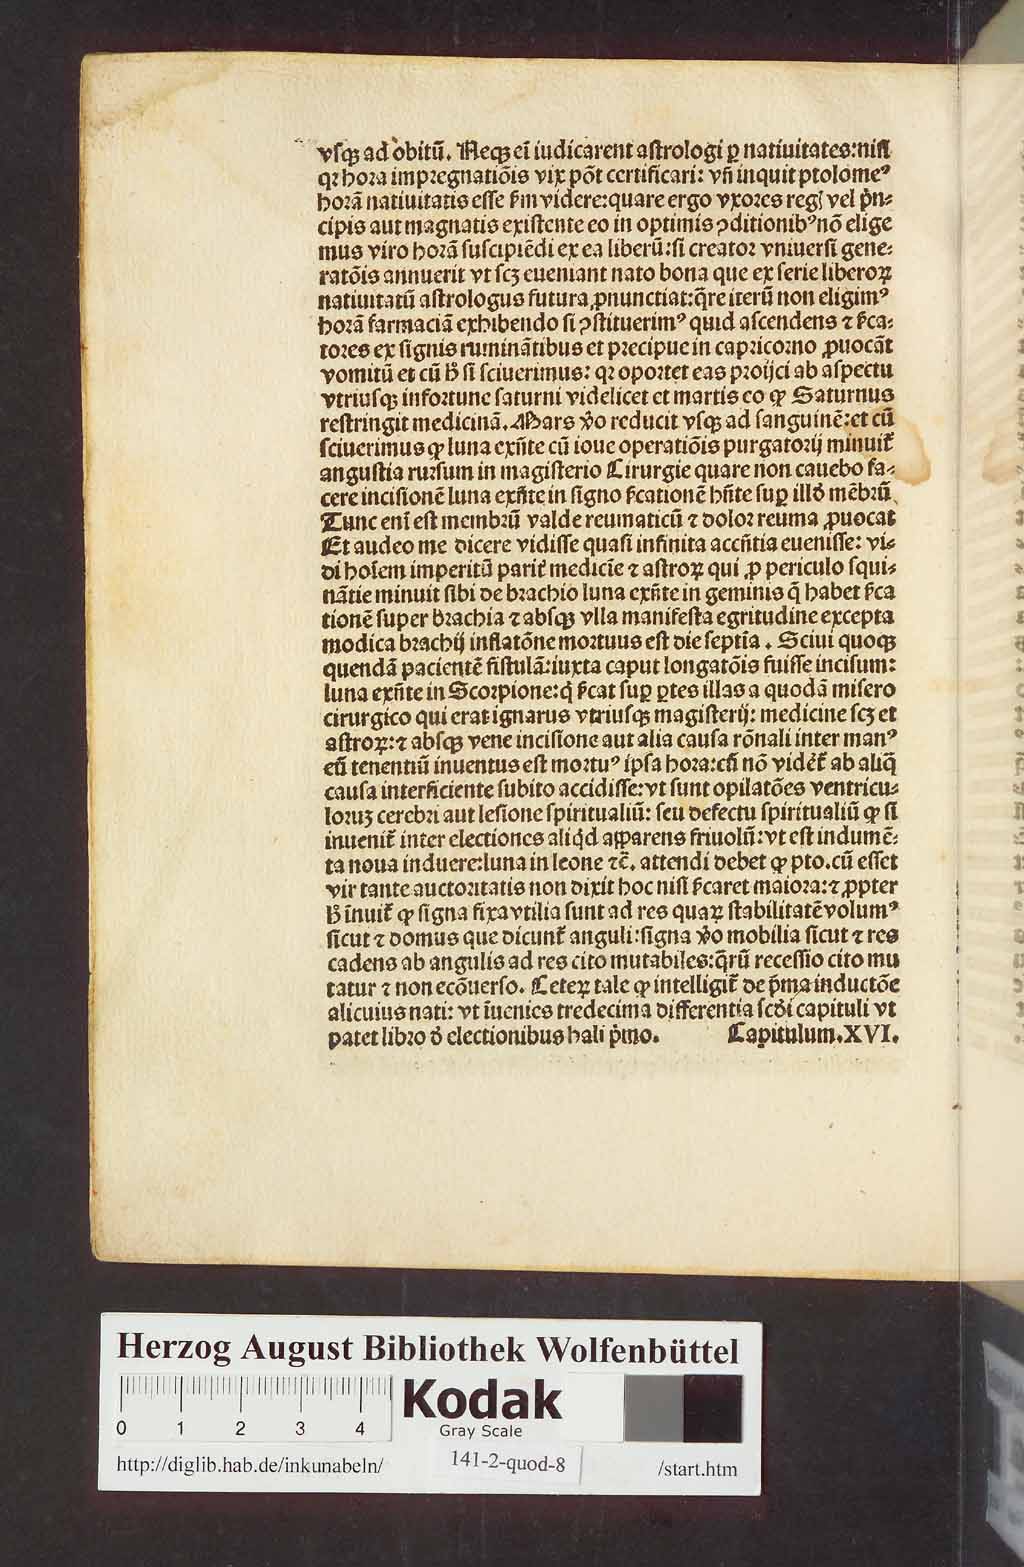 vſqꝫ ad obitū. Neqꝫ eī iudicarent aſtrologi ꝑ natiuitates: niſi
qꝛ hora impregnatiōis vix pōt certificari: vn̄ inquit ptolomeꝰ
horā natiuitatis eſſe ẜm videre: quare ergo vxores regꝭ vel pͥn⸗
cipis aut magnatis exiſtente eo in optimis ꝯditionibꝰ nō elige
mus viro horā ſuſcipiēdi ex ea liberū: ſi creator vniuerſi gene⸗
ratōis annuerit vt ſcꝫ eueniant nato bona que ex ſerie liberoꝝ
natiuitatū aſtrologus futura ꝓnunctiat: q̄re iterū non eligimꝰ
horā farmaciā exhibendo ſi ꝯſtituerimꝰ quid aſcendens ⁊ ẜca⸗
tores ex ſignis ruminātibus et precipue in capricorno ꝓuocāt
vomitū et cū hͦ ſi ſciuerimus: qꝛ oportet eas proijci ab aſpectu
vtriuſqꝫ infortune ſaturni videlicet et martis eo ꝙ Saturnus
reſtringit medicinā. Mars ꝟo reducit vſqꝫ ad ſanguinē: et cū
ſciuerimus ꝙ luna exn̄te cū ioue operatiōis purgatorij minuit᷑
anguſtia rurſum in magiſterio Cirurgie quare non cauebo fa⸗
cere inciſionē luna exn̄te in ſigno ẜcationē hn̄te ſuꝑ illd̓ mēbrū
Tunc enī eſt membrū valde reumaticū ⁊ dolor reuma ꝓuocat
Et audeo me dicere vidiſſe quaſi infinita accn̄tia eueniſſe: vi⸗
di hoīem imperitū parit᷑ medicīe ⁊ aſtroꝝ qui ꝓ periculo ſqui⸗
nātie minuit ſibi de brachio luna exn̄te in geminis q̄ habet ẜca
tionē ſuper brachia ⁊ abſqꝫ vlla manifeſta egritudine excepta
modica brachij inflatōne mortuus eſt die ſeptīa. Sciui quoqꝫ
quendā pacientē fiſtulā: iuxta caput longatōis fuiſſe inciſum:
luna exn̄te in Scorpione: qͥ ẜcat ſuꝑ ꝑtes illas a quodā miſero
cirurgico qui erat ignarus vtriuſqꝫ magiſterij: medicine ſcꝫ et
aſtroꝝ: ⁊ abſqꝫ vene inciſione aut alia cauſa rōnali inter manꝰ
eū tenentiū inuentus eſt mortuꝰ ipſa hora: cū nō vidēt᷑ ab aliq̄
cauſa interficiente ſubito accidiſſe: vt ſunt opilatōes ventricu⸗
loruꝫ cerebri aut leſione ſpiritualiū: ſeu defectu ſpiritualiū ꝙ ſi
inuenit᷑ inter electiones aliqͥd apparens friuolū: vt eſt indumē⸗
ta noua induere: luna in leone ⁊c̄. attendi debet ꝙ pto. cū eſſet
vir tante auctoritatis non dixit hoc niſi ẜcaret maiora: ⁊ ꝓpter
hͦ īnuit᷑ ꝙ ſigna fixa vtilia ſunt ad res quaꝝ ſtabilitatē volumꝰ
ſicut ⁊ domus que dicunt᷑ anguli: ſigna ꝟo mobilia ſicut ⁊ res
cadens ab angulis ad res cito mutabiles: q̄rū receſſio cito mu
tatur ⁊ non ecōuerſo. Ceteꝝ tale ꝙ intelligit᷑ de pͥma inductōe
alicuius nati: vt īuenies tredecima differentia ſcd̓i capituli vt
patet libro d̓ electionibus hali pͥmo. Capitulum. XVI.
Herzog August Bibliothek Wolfenbüttel
0 1 2 3 4
Kodak
Gray Scale
http://diglib.hab.de/inkunabeln/ 141-2-quod-8 /start.htm